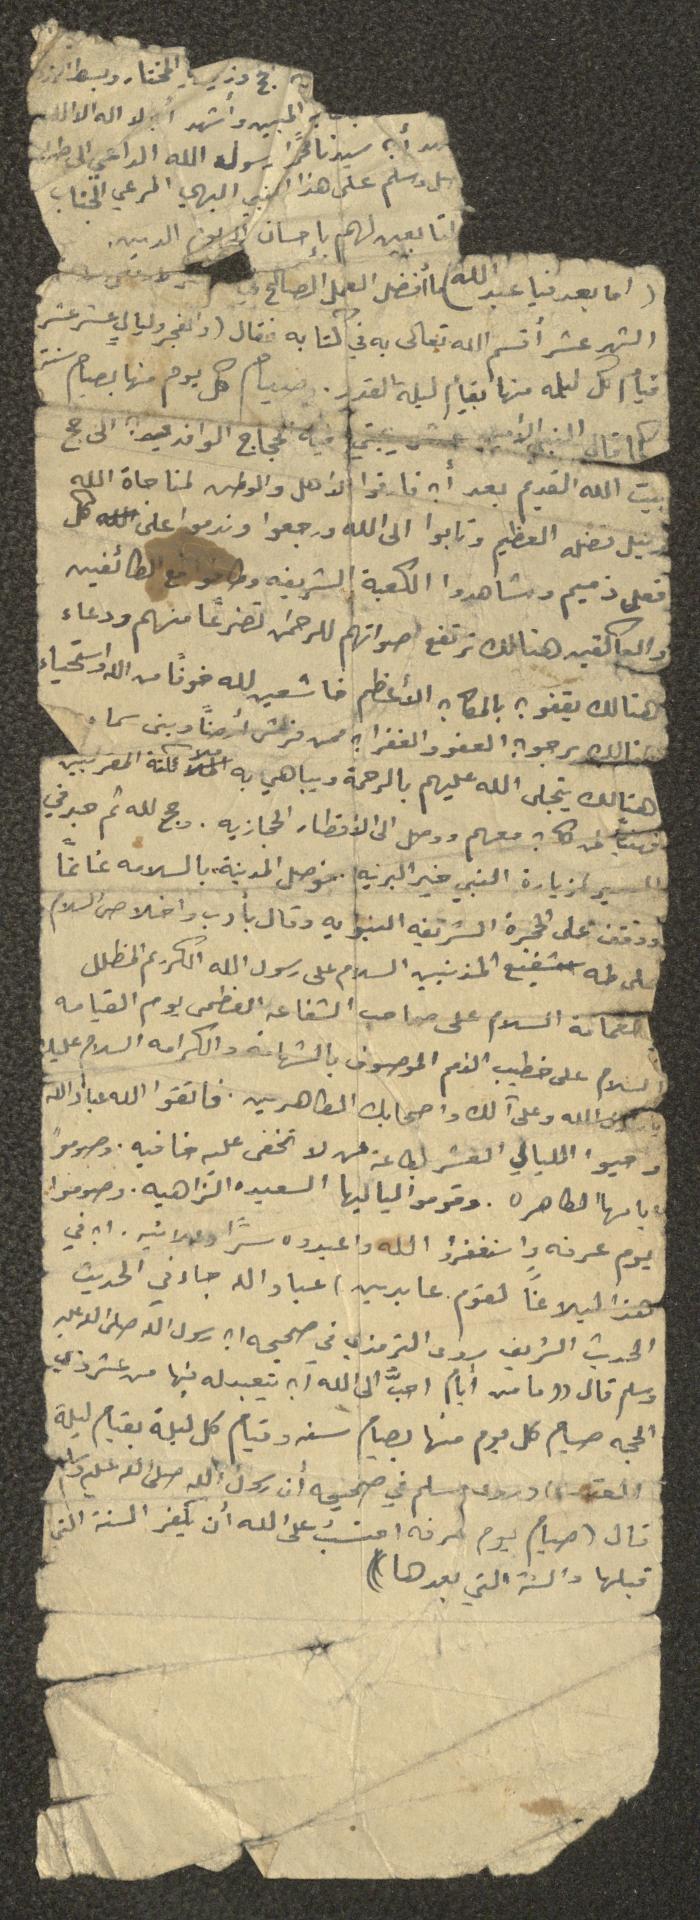 حج وزيـ المختار وبسط
المبين وأشهد أن لا اله الا الله
أن سيدنا محمدًا رسول الله الداعي الى
صل وسلم على هذا النبي البهي المرعي الجناب
لتابعين لهم بإحسان الى يوم الدين.
(اما بعد فيا عبد الله) ما أفضل العمل الصالح في
الشهر عشر أقسم الله تعالى به في كتابه فقال (والفجر وليالٍ عشر عشر
قيام كل ليله منها بقيام ليلة القدر. وصيام كل يوم منها بصيام سنة
كما قال النبي الأمين عشر فيه الحجاج الوافدين الى حج
بيت الله القديم بعد أن فارقوا الأهل والوطن لمناجاة الله
ونيل فضله العظيم وتابوا الى الله ورجعوا وندموا على كل
فعلٍ ذميم وشاهدوا الكعبة الشريفه وطافوا مع الطائفين
والعاكفين هنالك ترتفع اصواتهم للرحمن تضرعًا منهم ودعاء
هنالك يقفون بالمكان الأعظم خاشعين لله خوفًا من الله واستحياء
هنالك يرجون العفو والغفران ممن فرش أرضًا وبنى سماء
هنالك يتجلى الله عليهم بالرحمة ويباهي به ملائكته المقربين
فهنيئًا لمن كان معهم ووصل الى الأقطار الحجازيه. وحج لله ثم
المسير لزيارة النبي خير البريه. فوصل المدينة بالسلامه غانمًا
ووقف على الحجرة الشريفه النبويه وقال بأدب واخلاص السلام
على طه شفيع المذنبين السلام على رسول الله الكريم المظلل
بالغمامة السلام على صاحب الشفاعه العظمى يوم القيامه
السلام على خطيب الأمم الموصوف بالشهامه والكرامه السلام عليك
يا رسول الله وعلى آلك واصحابك الطاهرين. فاتقوا الله عباد الله
وحيوا الليالي العشر بطاعة من لا تخفى عليه خافيه. وصوموا
أيامها الطاهره. وقوموا لياليها السعيده الزاهيه. وصوموا
يوم عرفه واستغفروا الله واعبدوه سرًا وعلانيه. ان في
هذا لبلاغًا لقوم عابدين) عباد الله جاء في الحديث
الحديث الشريف روى الترمذي في صحيحه ان رسول الله صلى الله عليه
وسلم قال ((ما من أيام احبُّ الى الله أن يتعبد له فيها من عشر ذي
الحجه صيام كل يوم منها بصيام سنه وقيام كل ليلة بقيام ليلة
القدر)) وروى مسلم في صحيحه أن رسول الله صلى الله عليه وسلم
قال (صيام يوم عرفه احتسبُ على الله أن يكفر السنة التي
قبلها والسنة التي بعدها))